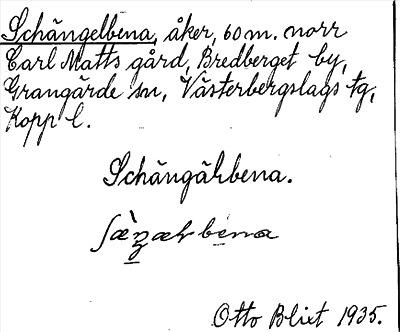 Schängelbena, åker, 60 m. norr
Carl Matts gård, Bredberget by,
Grangärde sn, Västerbergslags tg,
Kopp l.
Schängäḷbena.
Otto Blixt 1935.